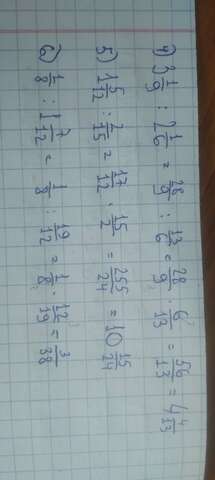 4) 3 1/9 : 2 1/6 = 28/9 : 13/6 = 28/9 · 6/13 = 56/13 = 4 4/13
5) 1 5/12 : 2/15 = 17/12 · 15/2 = 255/24 = 10 15/24
6) 1/8 : 1 7/12 = 1/8 : 19/12 = 1/8 · 12/19 = 3/38